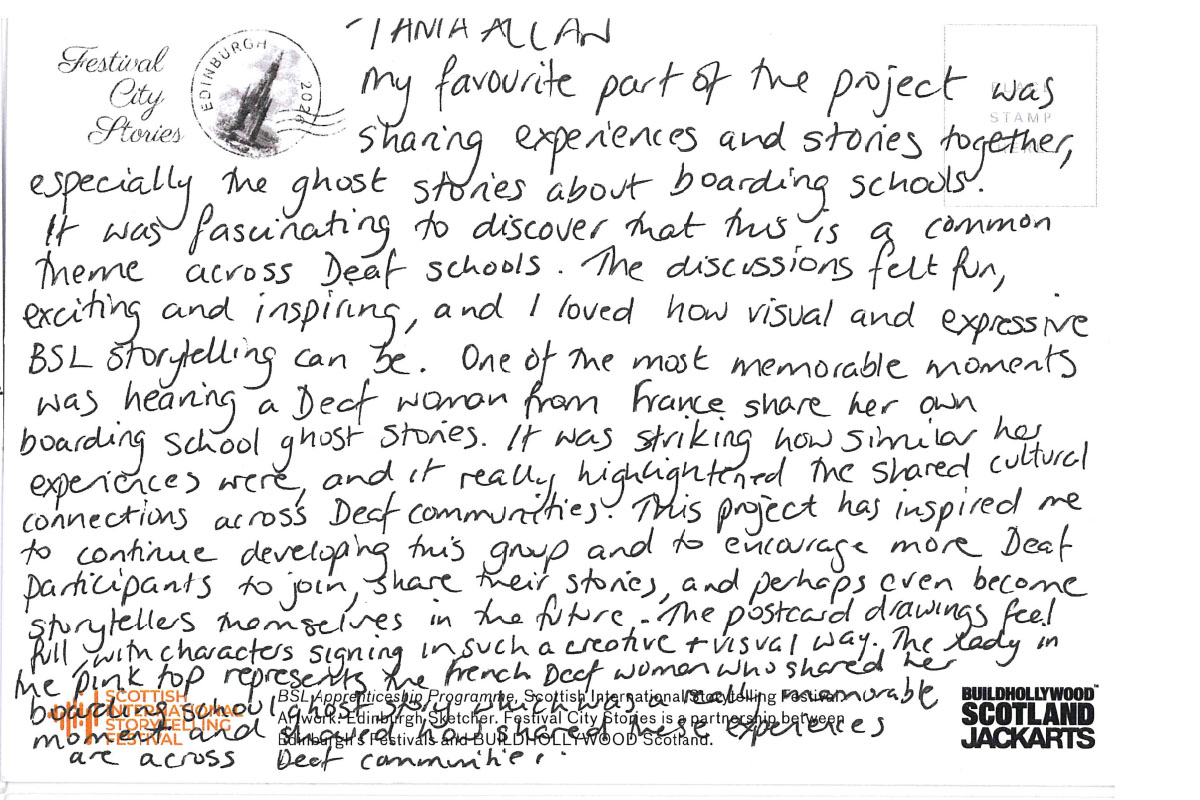 TANIA ALLAN
Festival
City
Stories
EDINBURGH 2026
My favourite part of the project was
STAMP
sharing experiences and stories together,
especially the ghost stories about boarding schools.
It was fascinating to discover that this is a common
theme across Deaf schools. The discussions felt fun,
exciting and inspiring, and I loved how visual and expressive
BSL storytelling can be. One of the most memorable moments
was hearing a Deaf woman from France share her own
boarding school ghost stories. It was striking how similar her
experiences were, and it really highlightened the shared cultural
connections across Deaf communities. This project has inspired me
to continue developing this group and to encourage more Deaf
participants to join, share their stories, and perhaps even become
storytellers themselves in the future. The postcard drawings feel
full with characters signing in such a creative + visual way. The lady in
the pink top represents the French Deaf women who shared her
boarding school ghost story which was a really memorable
moment and showed how shared these experiences
are across Deaf communities.
SCOTTISH
INTERNATIONAL
STORYTELLING
FESTIVAL
BSL Apprenticeship Programme, Scottish International Storytelling Festival.
Artwork: Edinburgh Sketcher. Festival City Stories is a partnership between
Edinburgh's Festivals and BUILDHOLLYWOOD Scotland.
BUILDHOLLYWOOD™
SCOTLAND
JACKARTS